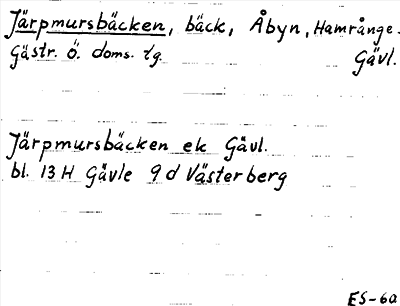 Järpmursbäcken, bäck, Åbyn, Hamrånge.
Gästr. ö. doms. tg. Gävl.
Järpmursbäcken ek Gävl.
bl. 13 H Gävle 9 d Västerberg
ES-60